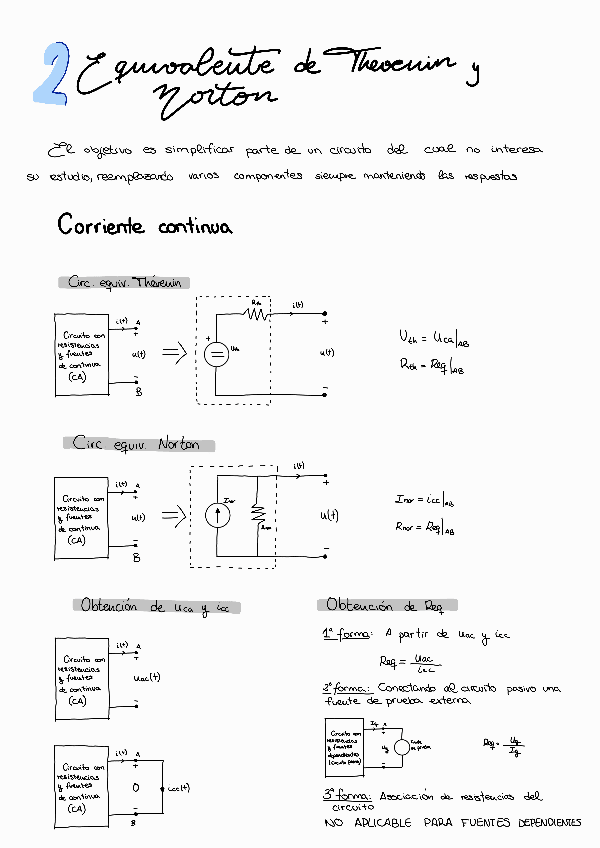 2 Equivalente de Thevenin y
Norton
El objetivo es simplificar parte de un circuito del cual no interesa
su estudio, reemplazando varios componentes siempre manteniendo las respuestas
Corriente continua
Circ. equiv. Thévenin
Circuito con
resistencias
y fuentes
de continua
(CA)
i(t) A
+
u(t)
-
B
⇒
Rth
i(t)
+
Uth
+
u(t)
-
Uth = Uca|AB
Rth = Req|AB
Circ equiv. Norton
Circuito con
resistencias
y fuentes
de continua
(CA)
i(t) A
+
u(t)
-
B
⇒
Inor
Rnor
i(t)
+
u(t)
-
Inor = icc|AB
Rnor = Req|AB
Obtención de uca y icc
Circuito con
resistencias
y fuentes
de continua
(CA)
i(t) A
+
uac(t)
-
Circuito con
resistencias
y fuentes
de continua
(CA)
i(t) A
+
0
icc(t)
-
B
Obtención de Req
1ª forma: A partir de uac y icc
Req = uac/icc
2ª forma: Conectando al circuito pasivo una
fuente de prueba externa
Circuito con
resistencias
y fuentes
dependientes
Ig A
+
Ug
-
Req = Ug/Ig
3ª forma: Asociación de resistencias del
circuito
NO APLICABLE PARA FUENTES DEPENDIENTES